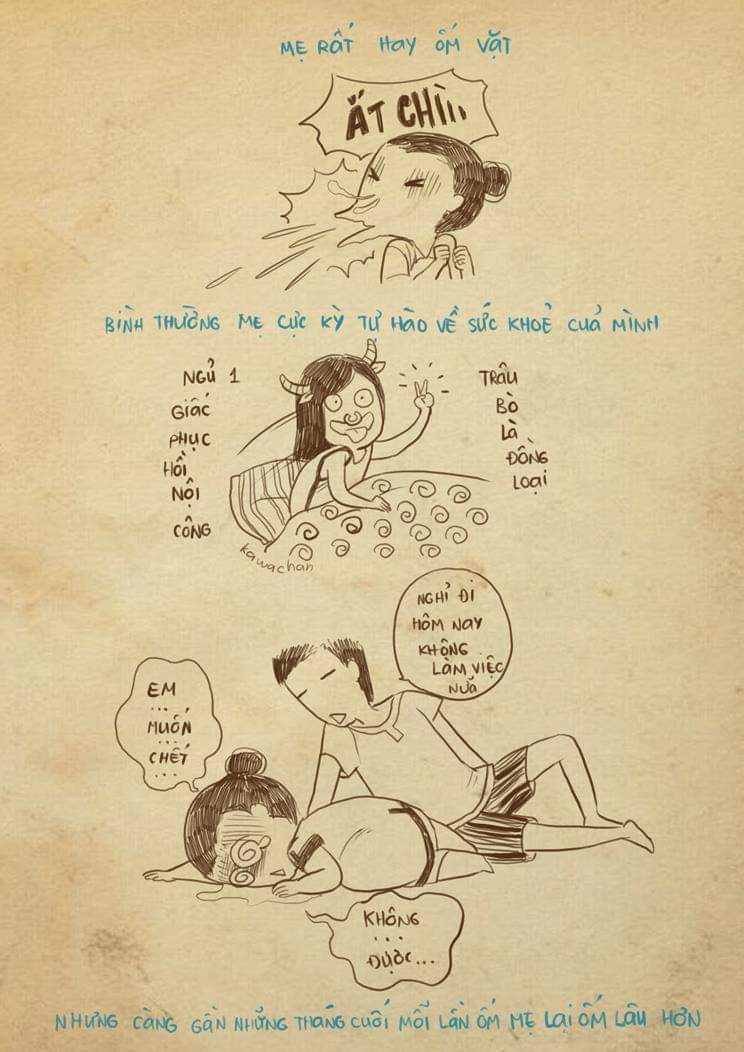 MẸ RẤT HAY ỐM VẶT
ẤT CHÌ...
BÌNH THƯỜNG MẸ CỰC KỲ TỰ HÀO VỀ SỨC KHOẺ CUẢ MÌNH
NGỦ 1
GIẤC
PHỤC
HỒI
NỘI
CÔNG
TRÂU
BÒ
LÀ
ĐỒNG
LOẠI
kawachan
NGHỈ ĐI
HÔM NAY
KHÔNG
LÀM VIỆC
NƯÃ
EM
...
MUỐN
...
CHẾT
...
KHÔNG
...
ĐƯỢC...
NHƯNG CÀNG GẦN NHỮNG THÁNG CUỐI MỖI LẦN ỐM MẸ LẠI ỐM LÂU HƠN